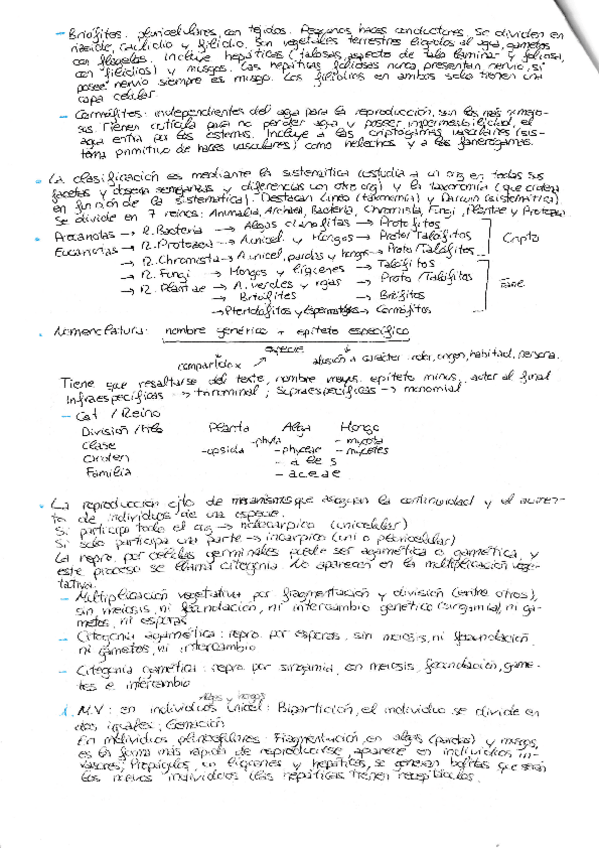 - Briófitos: pluricelulares, con tejidos. Pequeños haces conductores. Se dividen en
rizoide, caulidio y filidio. Son vegetales terrestres ligados al agua, gametos
con flagelos. Incluye hepáticas (talosas, aspecto de talo laminar y foliosa,
con filidios) y musgos. Las hepáticas foliosas nunca presentan nervio, si
posee nervio siempre es musgo. Los filidios en ambos solo tienen una
capa celular.
- Cormófitos: independientes del agua para la reproducción, son los más
Tienen cutícula para no perder agua y poseer impermeabilidad, el
agua entra por los estomas. Incluye a las criptógamas vasculares (sis-
tema primitivo de haces vasculares) como helechos y a las fanerógamas.
La clasificación es mediante la sistemática (estudia a un org en todas sus
facetas y observa semejanzas y diferencias con otro org) y la taxonomía (que ordena
en función de la sistemática). Destacan Lineo (taxonomía) y Darwin (sistemática).
Se divide en 7 reinos: Animalia, Archaea, Bacteria, Chromista, Fungi, Plantae y Protozoa.
Procariotas → R. Bacteria → Algas cianofitas → Protofitos
Eucariotas → R. Protozoa → A. unicel. y Hongos → Proto/Talófitos
Cripto
→ R. Chromista → A. unicel, pardas y hongos → Proto/Talófitos
→ R. Fungi → Hongos y líquenes → Talófitos
→ R. Plantae → A. verdes y rojas → Proto/Talófitos
Fane
→ Briófitos → Briófitos
→ Pteridofitos y Espermatofitos → Cormófitos
Nomenclatura: nombre genérico + epíteto específico
especie
compartido x alusión a carácter, color, origen, habitad, persona.
Tiene que resaltarse del texto, nombre mayus. epíteto minus, autor al final
Infraespecíficos → trinominal; Supraespecíficos → monomial
- Cat / Reino
División / Filo Planta Alga Hongo
Clase -phyta - mycota
Orden -opsida - phyceae - mycetes
Familia - ales
- aceae
La reproducción cjto de mecanismos que aseguran la continuidad y el aumen-
to de individuos de una especie.
Si participa todo el org → holocárpico (unicelular)
Si solo participa una parte → (uni o pluricelular)
La repro. por células germinales puede ser agamética o gamética, y
este proceso se llama citogonia. No aparecen en la multiplicación vege-
tativa.
- Multiplicación vegetativa por fragmentación y división (entre otros),
sin meiosis, ni fecundación, ni intercambio genético (singamia), ni ga-
metos, ni esporas
- Citogonia agamética: repro. por esporas, sin meiosis, ni fecundación
ni gametos, ni intercambio
- Citogonia gamética: repro. por singamia, con meiosis, fecundación, game-
tos e intercambio
algas y hongos
M.V: en individuos unicel: Bipartición, el individuo se divide en
dos iguales; Gemación
En individuos pluricelulares: Fragmentación, en algas (pardas) y musgos,
es la forma más rápida de reproducirse, aparece en individuos in-
vasores; Propágulos, en líquenes y hepáticas, se generan bolitas que serán
los nuevos individuos (las hepáticas tienen receptáculos.